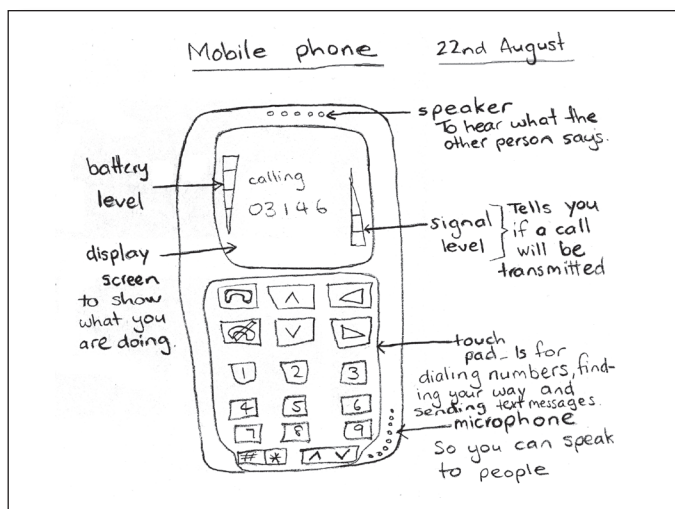 Mobile phone
22nd August
speaker
To hear what the
other person says.
battery
level
calling
03146
signal
level
Tells you
if a call
will be
transmitted
display
screen
to show
what you
are doing.
touch
pad_ Is for
dialing numbers, find-
ing your way and
sending text messages.
1 2 3
4 5 6
7 8 9
# *
microphone
So you can speak
to people